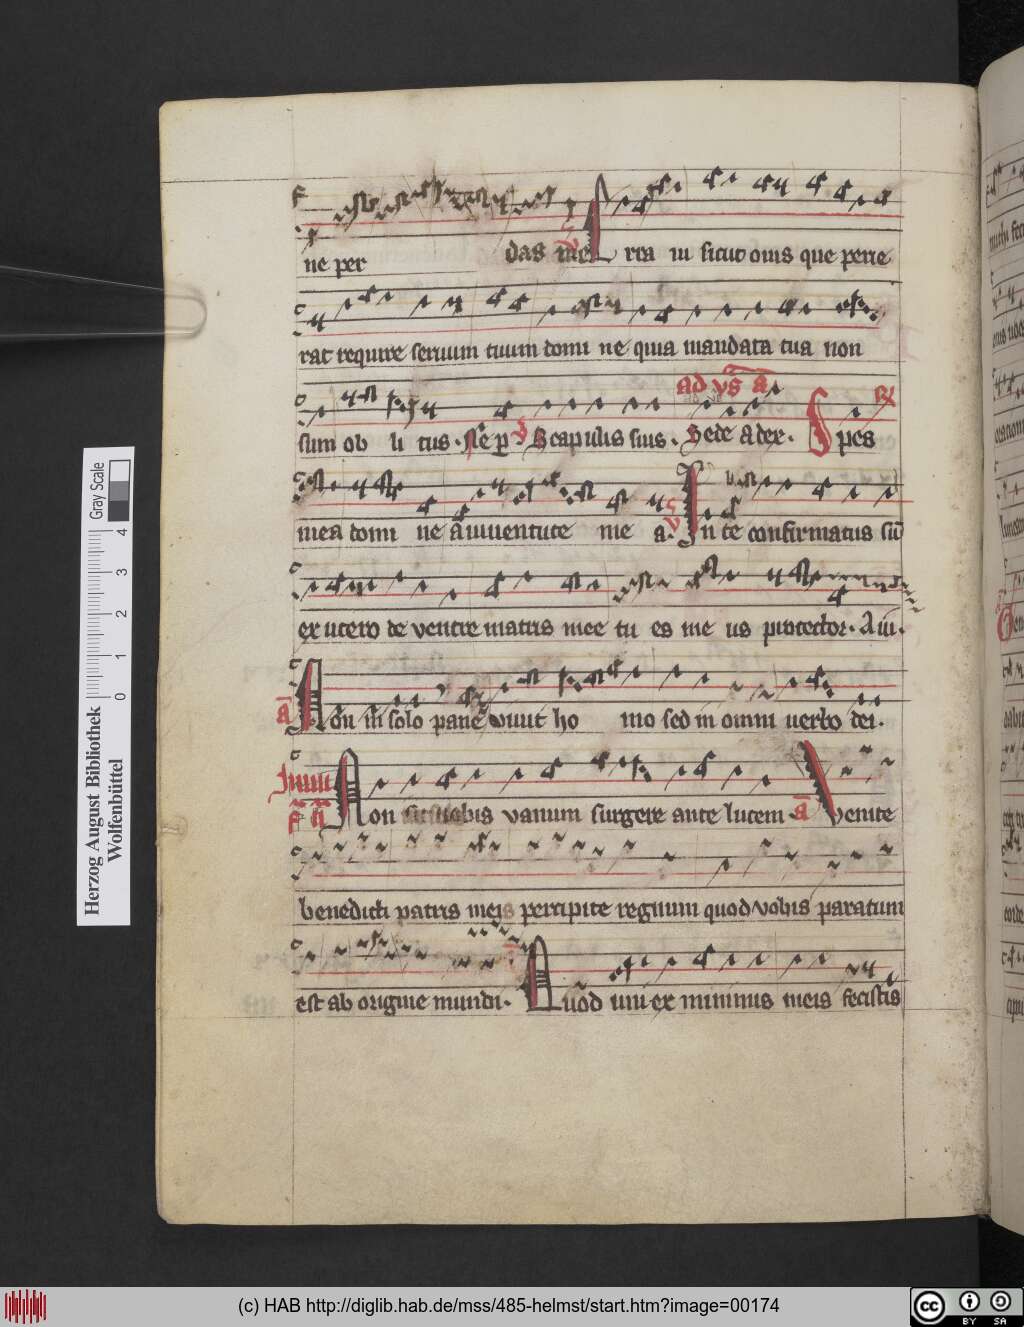 ne per das me Erra ui sicut ouis que perie
rat require seruum tuum domi ne quia mandata tua non
ad vs a
sum ob li tus. Ne p. V Scapulis suis. Sede a dex. Spes R
mea domi ne a iuuentute me a. V In te confirmatus su
ex utero de ventre matris mee tu es me us protector. A iu.
a Non in solo pane viuit ho mo sed in omni uerbo dei.
Inuit
f ii Non sit uobis vanum surgere ante lucem. a Venite
benedicti patris meis percipite regnum quod vobis paratum
est ab origine mundi. Quod uni ex minimis meis fecistis
Herzog August Bibliothek
Wolfenbüttel
0 1 2 3 4
Gray Scale
(c) HAB http://diglib.hab.de/mss/485-helmst/start.htm?image=00174
cc BY SA